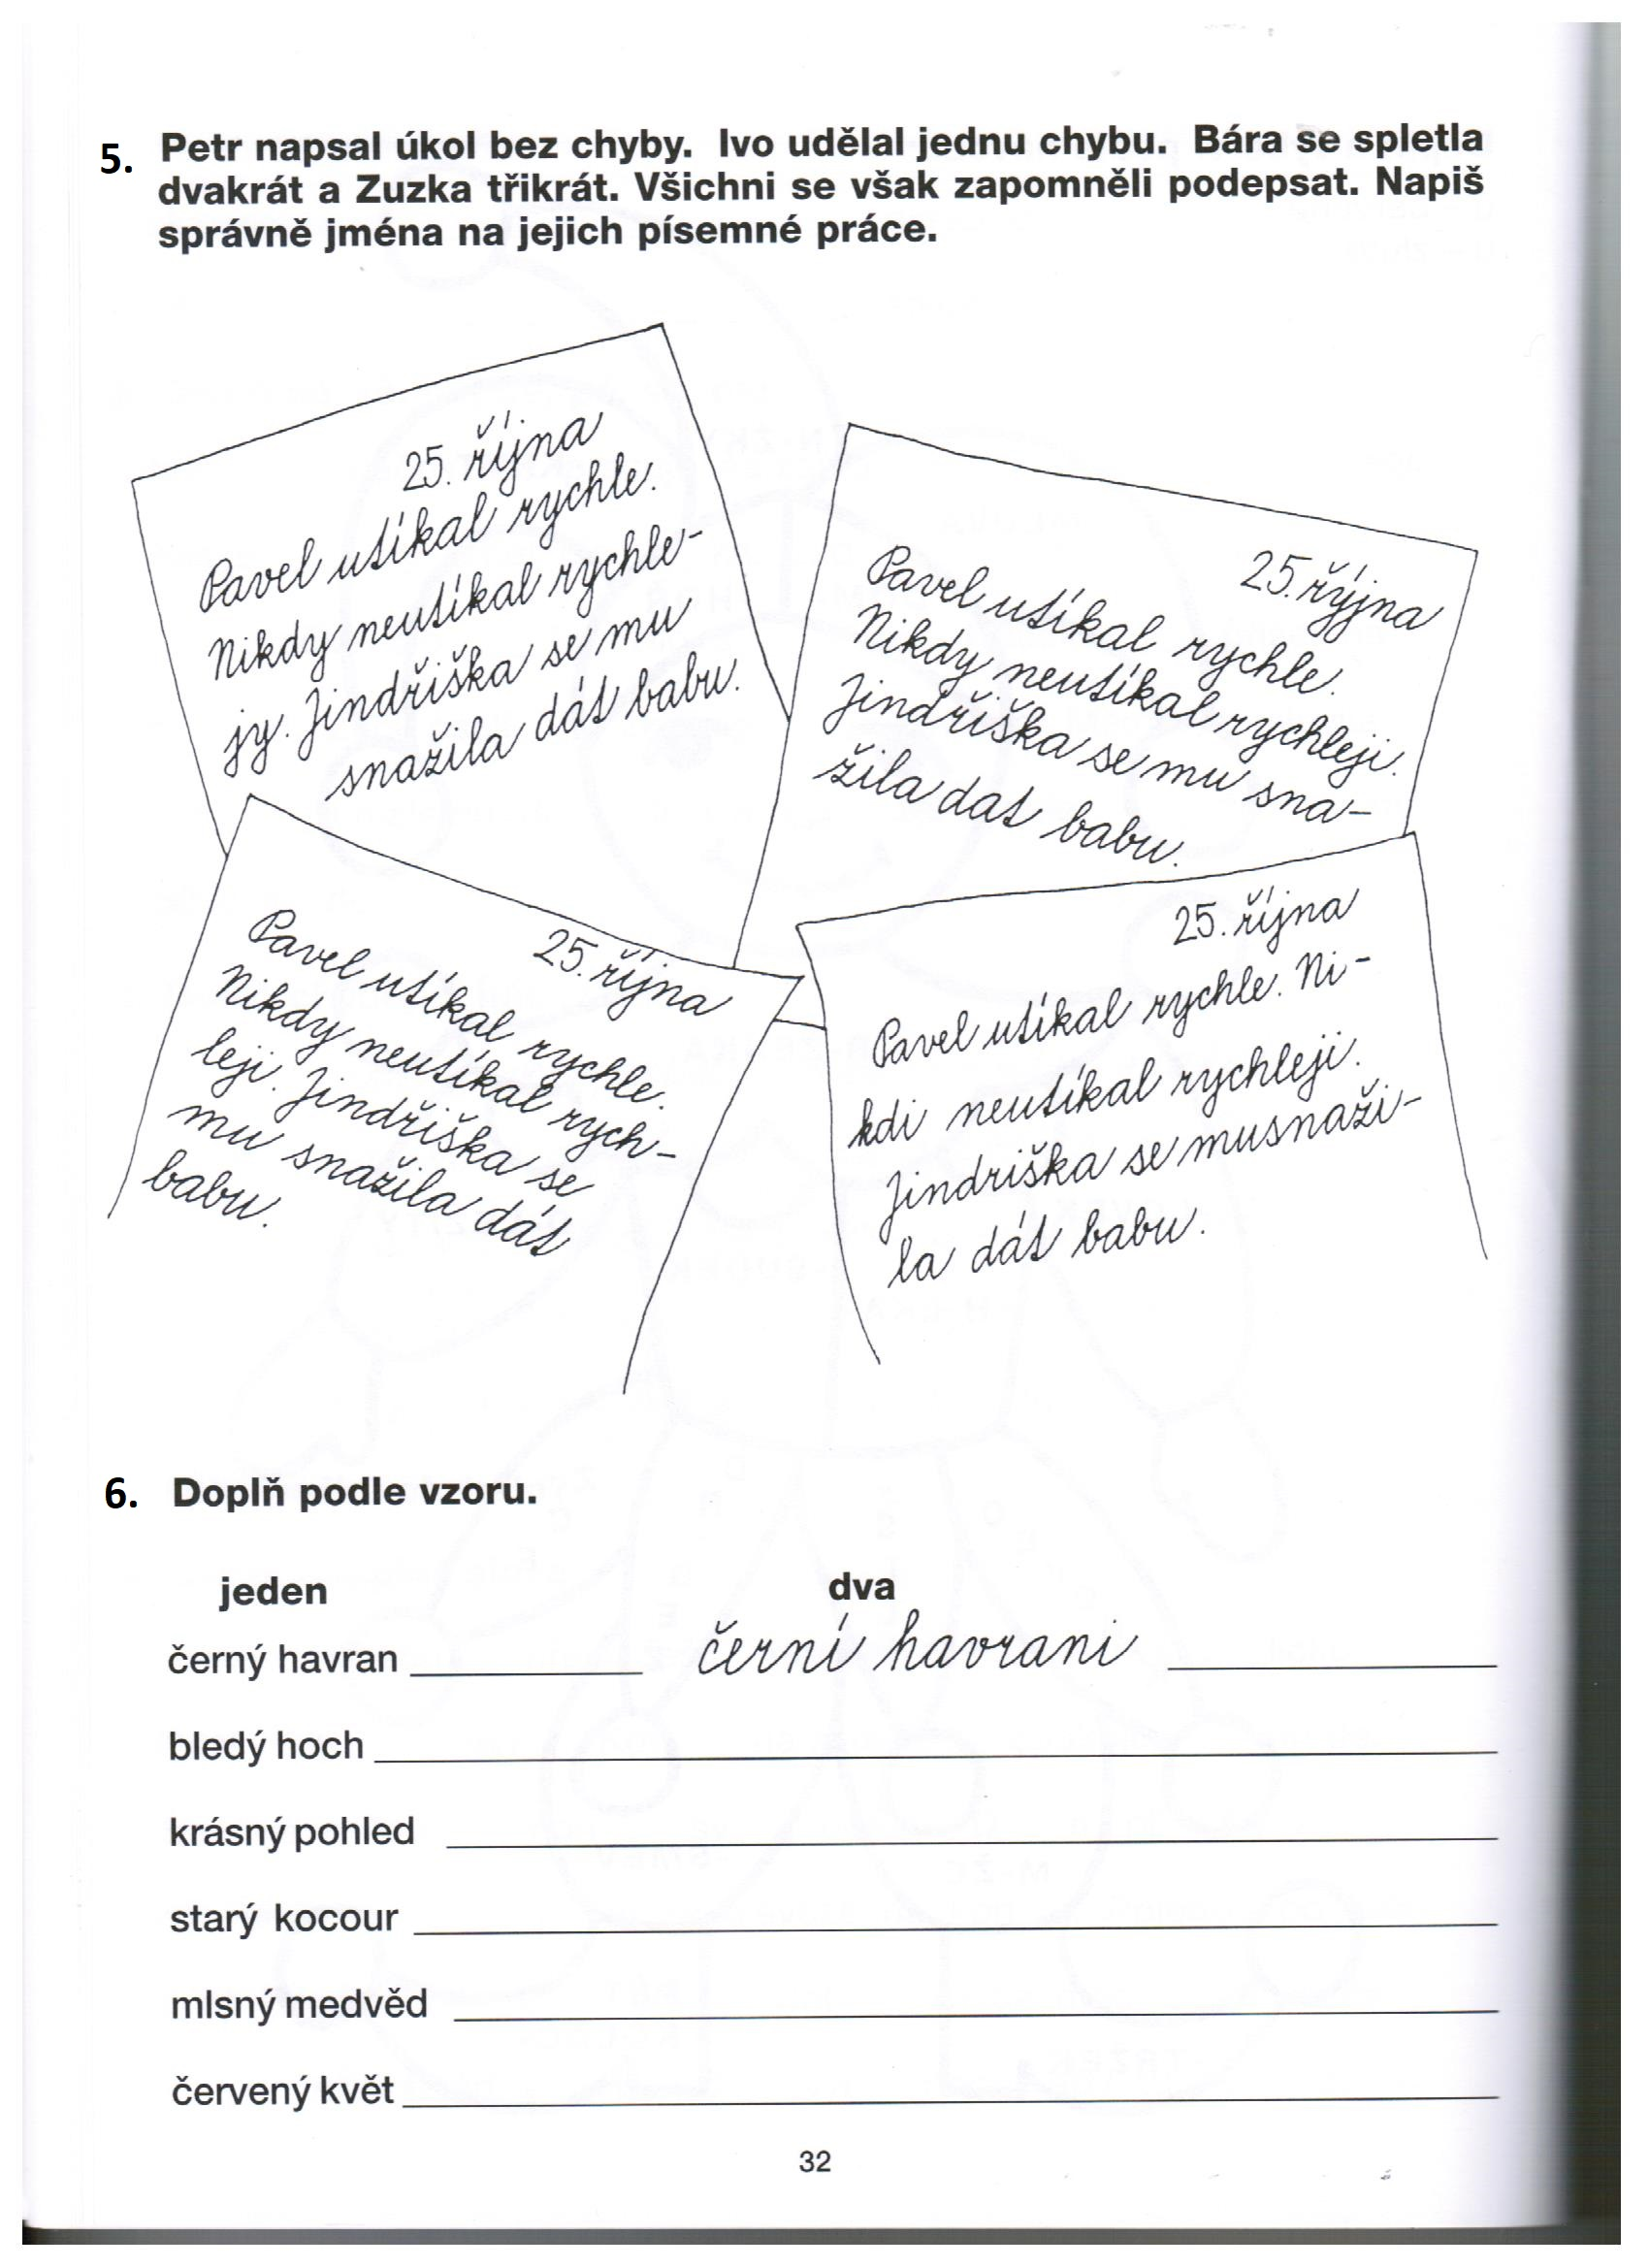 5. Petr napsal úkol bez chyby. Ivo udělal jednu chybu. Bára se spletla
dvakrát a Zuzka třikrát. Všichni se však zapomněli podepsat. Napiš
správně jména na jejich písemné práce.
25. října
Pavel utíkal rychle.
Nikdy neutíkal rychle-
jy. Jindřiška se mu
snažila dát babu.
25. řýjna
Pavel utíkal rychle.
Nikdy neutíkal rychleji.
Jindřiška se mu sna-
žila dat babu.
25. října
Pavel utíkal rychle.
Nikdy neutíkal rych-
leji. Jindřiška se
mu snažila dát
babu.
25. října
Pavel utíkal rychle. Ni-
kdi neutíkal rychleji.
Jindriška se musnaži-
la dát babu.
6. Doplň podle vzoru.
jeden dva
černý havran černí havrani
bledý hoch
krásný pohled
starý kocour
mlsný medvěd
červený květ
32